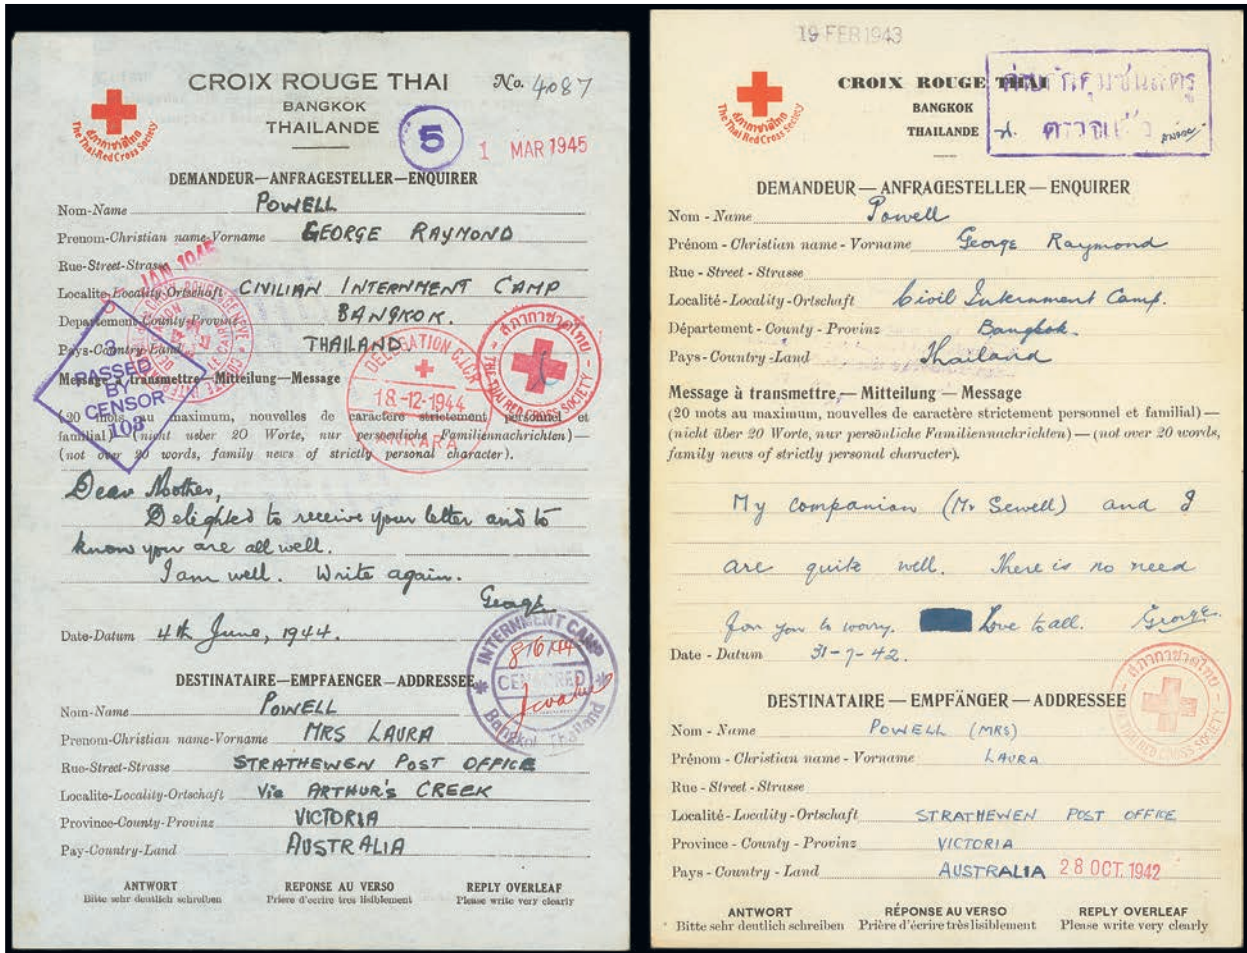 CROIX ROUGE THAI
No. 4087
BANGKOK
THAILANDE
สภากาชาดไทย
The Thai Red Cross Society
5
1 MAR 1945
DEMANDEUR—ANFRAGESTELLER—ENQUIRER
Nom-Name POWELL
Prenom-Christian name-Vorname GEORGE RAYMOND
Rue-Street-Strasse
JAN 1945
Localite-Locality-Ortschaft CIVILIAN INTERNMENT CAMP
Departement-County-Provinz BANGKOK.
Pays-Country-Land THAILAND.
3
PASSED
BY
CENSOR
103
DELEGATION C.I.C.R
18-12-1944
ANKARA
สภากาชาดไทย
THE THAI RED CROSS SOCIETY
Message à transmettre—Mitteilung—Message
(20 mots au maximum, nouvelles de caractère strictement personnel et
familial)—(nicht ueber 20 Worte, nur persoenliche Familiennachrichten)—
(not over 20 words, family news of strictly personal character).
Dear Mother,
Delighted to receive your letter and to
know you are all well.
I am well. Write again.
George
Date-Datum 4th June, 1944.
INTERNMENT CAMP
8/6/44
CENSORED
Bangkok Thailand
DESTINATAIRE—EMPFAENGER—ADDRESSEE
Nom-Name POWELL
Prenom-Christian name-Vorname MRS LAURA
Rue-Street-Strasse STRATHEWEN POST OFFICE
Localite-Locality-Ortschaft Via ARTHUR'S CREEK
Province-County-Provinz VICTORIA
Pay-Country-Land AUSTRALIA
ANTWORT REPONSE AU VERSO REPLY OVERLEAF
Bitte sehr deutlich schreiben Priere d'ecrire tres lisiblement Please write very clearly
19 FEB 1943
CROIX ROUGE THAI
BANGKOK
THAILANDE
สภากาชาดไทย
The Thai Red Cross Society
DEMANDEUR — ANFRAGESTELLER — ENQUIRER
Nom - Name Powell
Prénom - Christian name - Vorname George Raymond
Rue - Street - Strasse
Localité-Locality-Ortschaft Civil Internment Camp.
Département - County - Provinz Bangkok.
Pays - Country - Land Thailand
Message à transmettre,— Mitteilung — Message
(20 mots au maximum, nouvelles de caractère strictement personel et familial) —
(nicht über 20 Worte, nur persönliche Familiennachrichten) — (not over 20 words,
family news of strictly personal character).
My companion (Mr Sewell) and I
are quite well. There is no need
for you to worry. Love to all. George.
Date - Datum 31-7-42.
สภากาชาดไทย
THE THAI RED CROSS SOCIETY
DESTINATAIRE — EMPFÄNGER — ADDRESSEE
Nom - Name POWELL (MRS)
Prénom - Christian name - Vorname LAURA
Rue - Street - Strasse
Localité - Locality - Ortschaft STRATHEWEN POST OFFICE
Province - County - Provinz VICTORIA
Pays - Country - Land AUSTRALIA 28 OCT. 1942
ANTWORT RÉPONSE AU VERSO REPLY OVERLEAF
Bitte sehr deutlich schreiben Prière d'écrire très lisiblement Please write very clearly